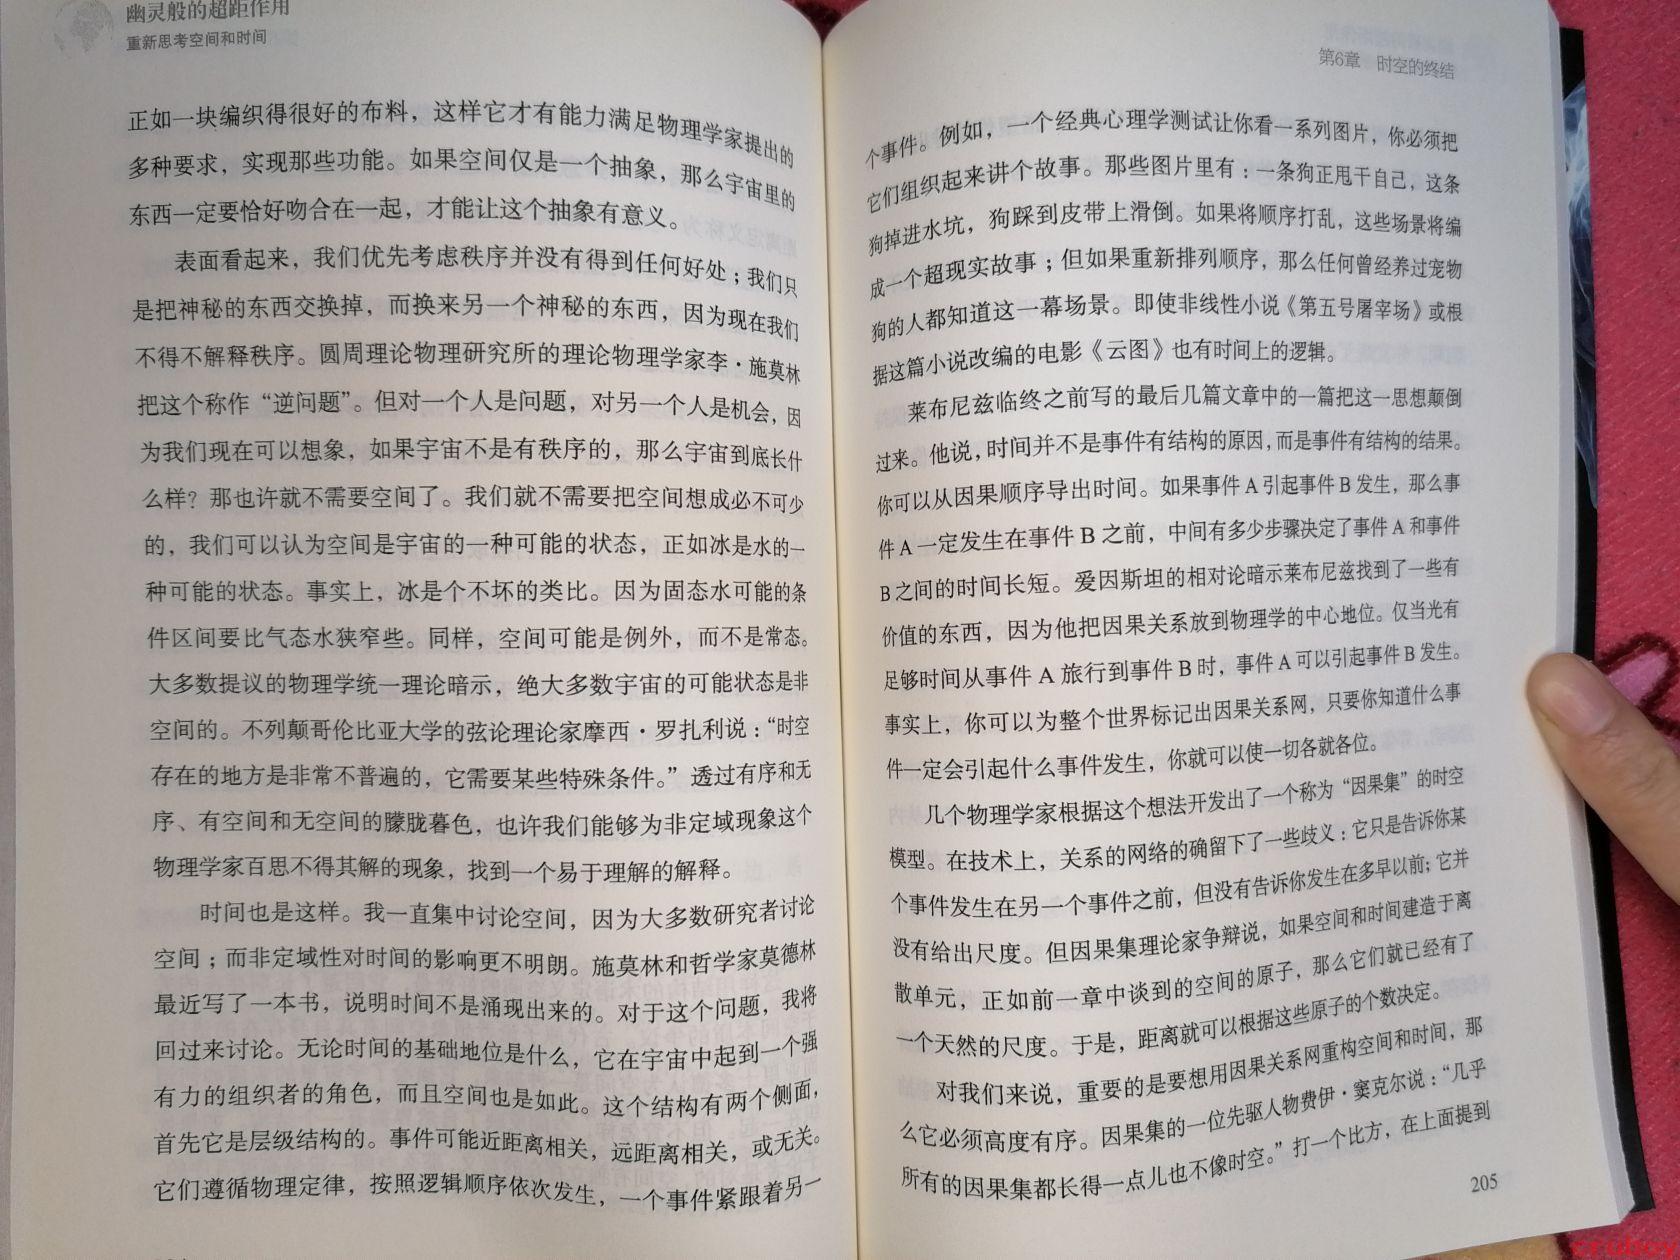 幽灵般的超距作用
重新思考空间和时间
正如一块编织得很好的布料，这样它才有能力满足物理学家提出的
多种要求，实现那些功能。如果空间仅是一个抽象，那么宇宙里的
东西一定要恰好吻合在一起，才能让这个抽象有意义。
表面看起来，我们优先考虑秩序并没有得到任何好处；我们只
是把神秘的东西交换掉，而换来另一个神秘的东西，因为现在我们
不得不解释秩序。圆周理论物理研究所的理论物理学家李·施莫林
把这个称作“逆问题”。但对一个人是问题，对另一个人是机会，因
为我们现在可以想象，如果宇宙不是有秩序的，那么宇宙到底长什
么样？那也许就不需要空间了。我们就不需要把空间想成必不可少
的，我们可以认为空间是宇宙的一种可能的状态，正如冰是水的一
种可能的状态。事实上，冰是个不坏的类比。因为固态水可能的条
件区间要比气态水狭窄些。同样，空间可能是例外，而不是常态。
大多数提议的物理学统一理论暗示，绝大多数宇宙的可能状态是非
空间的。不列颠哥伦比亚大学的弦论理论家摩西·罗扎利说：“时空
存在的地方是非常不普遍的，它需要某些特殊条件。”透过有序和无
序、有空间和无空间的朦胧暮色，也许我们能够为非定域现象这个
物理学家百思不得其解的现象，找到一个易于理解的解释。
时间也是这样。我一直集中讨论空间，因为大多数研究者讨论
空间；而非定域性对时间的影响更不明朗。施莫林和哲学家莫德林
最近写了一本书，说明时间不是涌现出来的。对于这个问题，我将
回过来讨论。无论时间的基础地位是什么，它在宇宙中起到一个强
有力的组织者的角色，而且空间也是如此。这个结构有两个侧面，
首先它是层级结构的。事件可能近距离相关，远距离相关，或无关。
它们遵循物理定律，按照逻辑顺序依次发生，一个事件紧跟着另一
第6章 时空的终结
个事件。例如，一个经典心理学测试让你看一系列图片，你必须把
它们组织起来讲个故事。那些图片里有：一条狗正甩干自己，这条
狗掉进水坑，狗踩到皮带上滑倒。如果将顺序打乱，这些场景将编
成一个超现实故事；但如果重新排列顺序，那么任何曾经养过宠物
狗的人都知道这一幕场景。即使非线性小说《第五号屠宰场》或根
据这篇小说改编的电影《云图》也有时间上的逻辑。
莱布尼兹临终之前写的最后几篇文章中的一篇把这一思想颠倒
过来。他说，时间并不是事件有结构的原因，而是事件有结构的结果。
你可以从因果顺序导出时间。如果事件A引起事件B发生，那么事
件A一定发生在事件B之前，中间有多少步骤决定了事件A和事件
B之间的时间长短。爱因斯坦的相对论暗示莱布尼兹找到了一些有
价值的东西，因为他把因果关系放到物理学的中心地位。仅当光有
足够时间从事件A旅行到事件B时，事件A可以引起事件B发生。
事实上，你可以为整个世界标记出因果关系网，只要你知道什么事
件一定会引起什么事件发生，你就可以使一切各就各位。
几个物理学家根据这个想法开发出了一个称为“因果集”的时空
模型。在技术上，关系的网络的确留下了一些歧义：它只是告诉你某
个事件发生在另一个事件之前，但没有告诉你发生在多早以前；它并
没有给出尺度。但因果集理论家争辩说，如果空间和时间建造于离
散单元，正如前一章中谈到的空间的原子，那么它们就已经有了
一个天然的尺度。于是，距离就可以根据这些原子的个数决定。
对我们来说，重要的是要想用因果关系网重构空间和时间，那
么它必须高度有序。因果集的一位先驱人物费伊·窦克尔说：“几乎
所有的因果集都长得一点儿也不像时空。”打一个比方，在上面提到
205